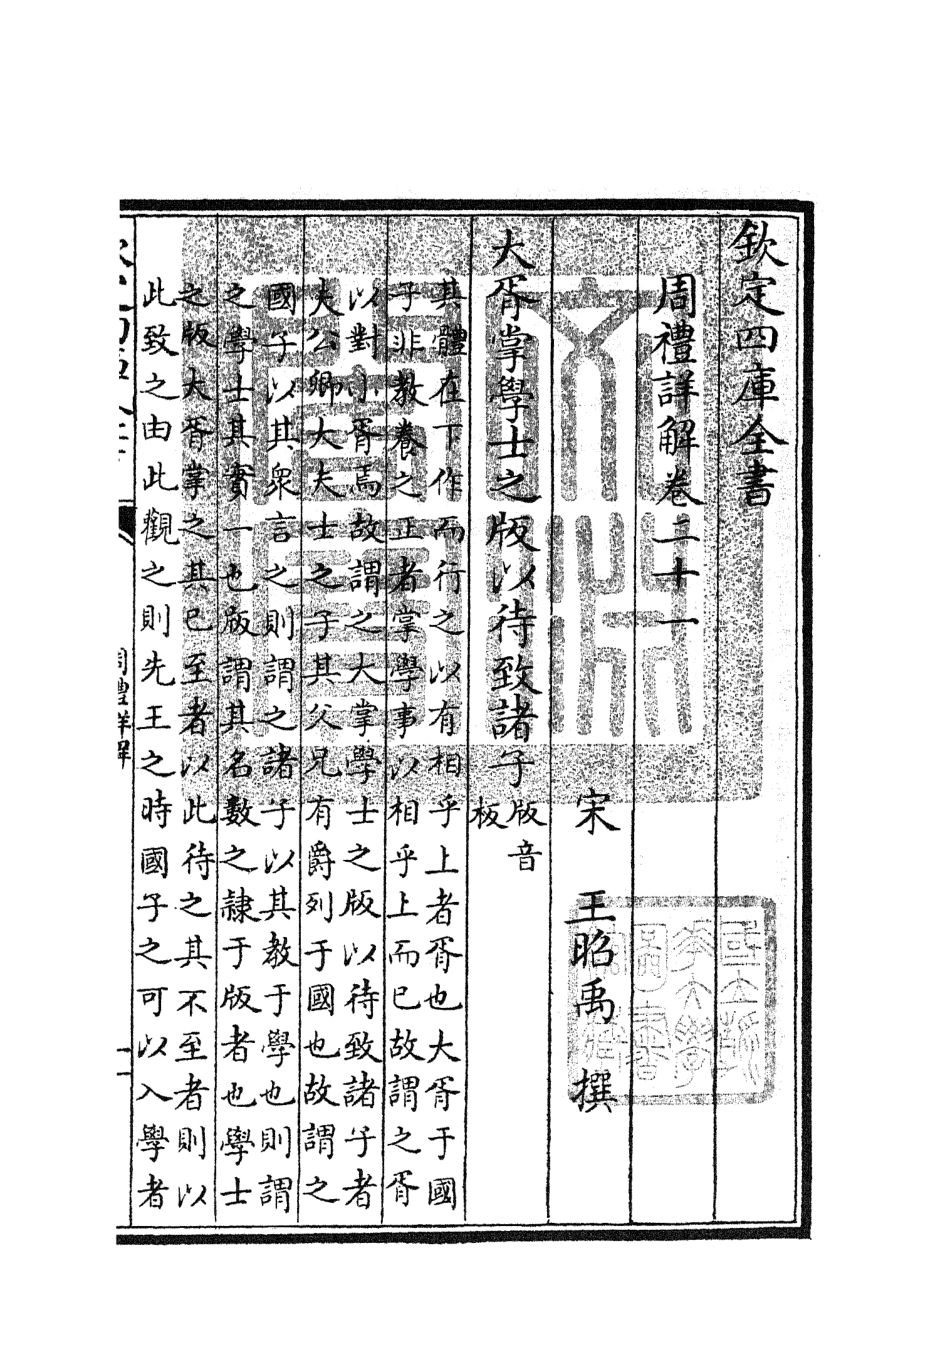 欽定四庫全書
周禮詳解卷二十一
宋　王昭禹　撰
大胥掌學士之版以待致諸子版音
板
其體在下作而行之以有相乎上者胥也大胥于國
子非教養之正者掌學事以相乎上而已故謂之胥
以對小胥焉故謂之大掌學士之版以待致諸子者
夫公卿大夫士之子其父兄有爵列于國也故謂之
國子以其衆言之則謂之諸子以其教于學也則謂
之學士其實一也版謂其名數之隷于版者也學士
之版大胥掌之其已至者以此待之其不至者則以
此致之由此觀之則先王之時國子之可以入學者
周禮詳解
一